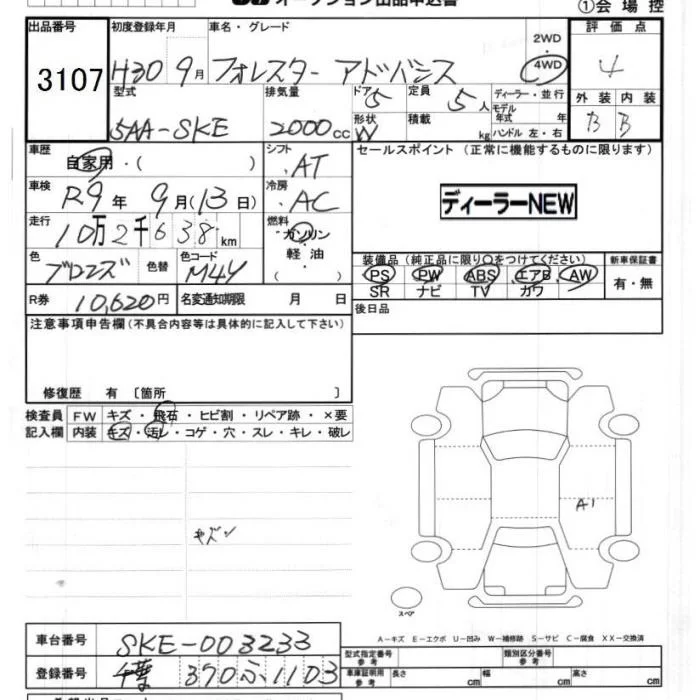 オークション出品申込書
①会場控
出品番号 3107
初度登録年月 H30 9月
車名・グレード フォレスター アドバンス
2WD・4WD
評価点 4
型式 5AA-SKE
排気量 2000cc
ドア 5
形状 W
定員 5人
積載 kg
ディーラー・並行
モデル年式 年
ハンドル 左・右
外装 B
内装 B
車歴 自家用・( )
シフト AT
セールスポイント (正常に機能するものに限ります)
ディーラーNEW
車検 R9年 9月(13日)
冷房 AC
走行 10万2千638km
燃料 ガソリン 軽油 ( )
色 ブロンズ
色替
色コード M4Y
装備品 (純正品に限り○をつけてください)
PS PW ABS エアB AW
SR ナビ TV カワ
新車保証書
有・無
R券 10,620円
名変通知期限 月 日
後日品
注意事項申告欄(不具合内容等は具体的に記入して下さい)
修復歴 有 〔箇所 〕
検査員記入欄
FW キズ・飛石・ヒビ割・リペア跡・×要
内装 キズ・汚レ・コゲ・穴・スレ・キレ・破レ
A1
キズン
スペア
A-キズ E-エクボ U-凹み W-補修跡 S-サビ C-腐食 XX-交換済
車台番号 SKE-003233
登録番号 千葉 370ふ1103
型式指定番号 参考
類別区分番号 参考
車庫証明用 参考 長さ cm 幅 cm 高さ cm